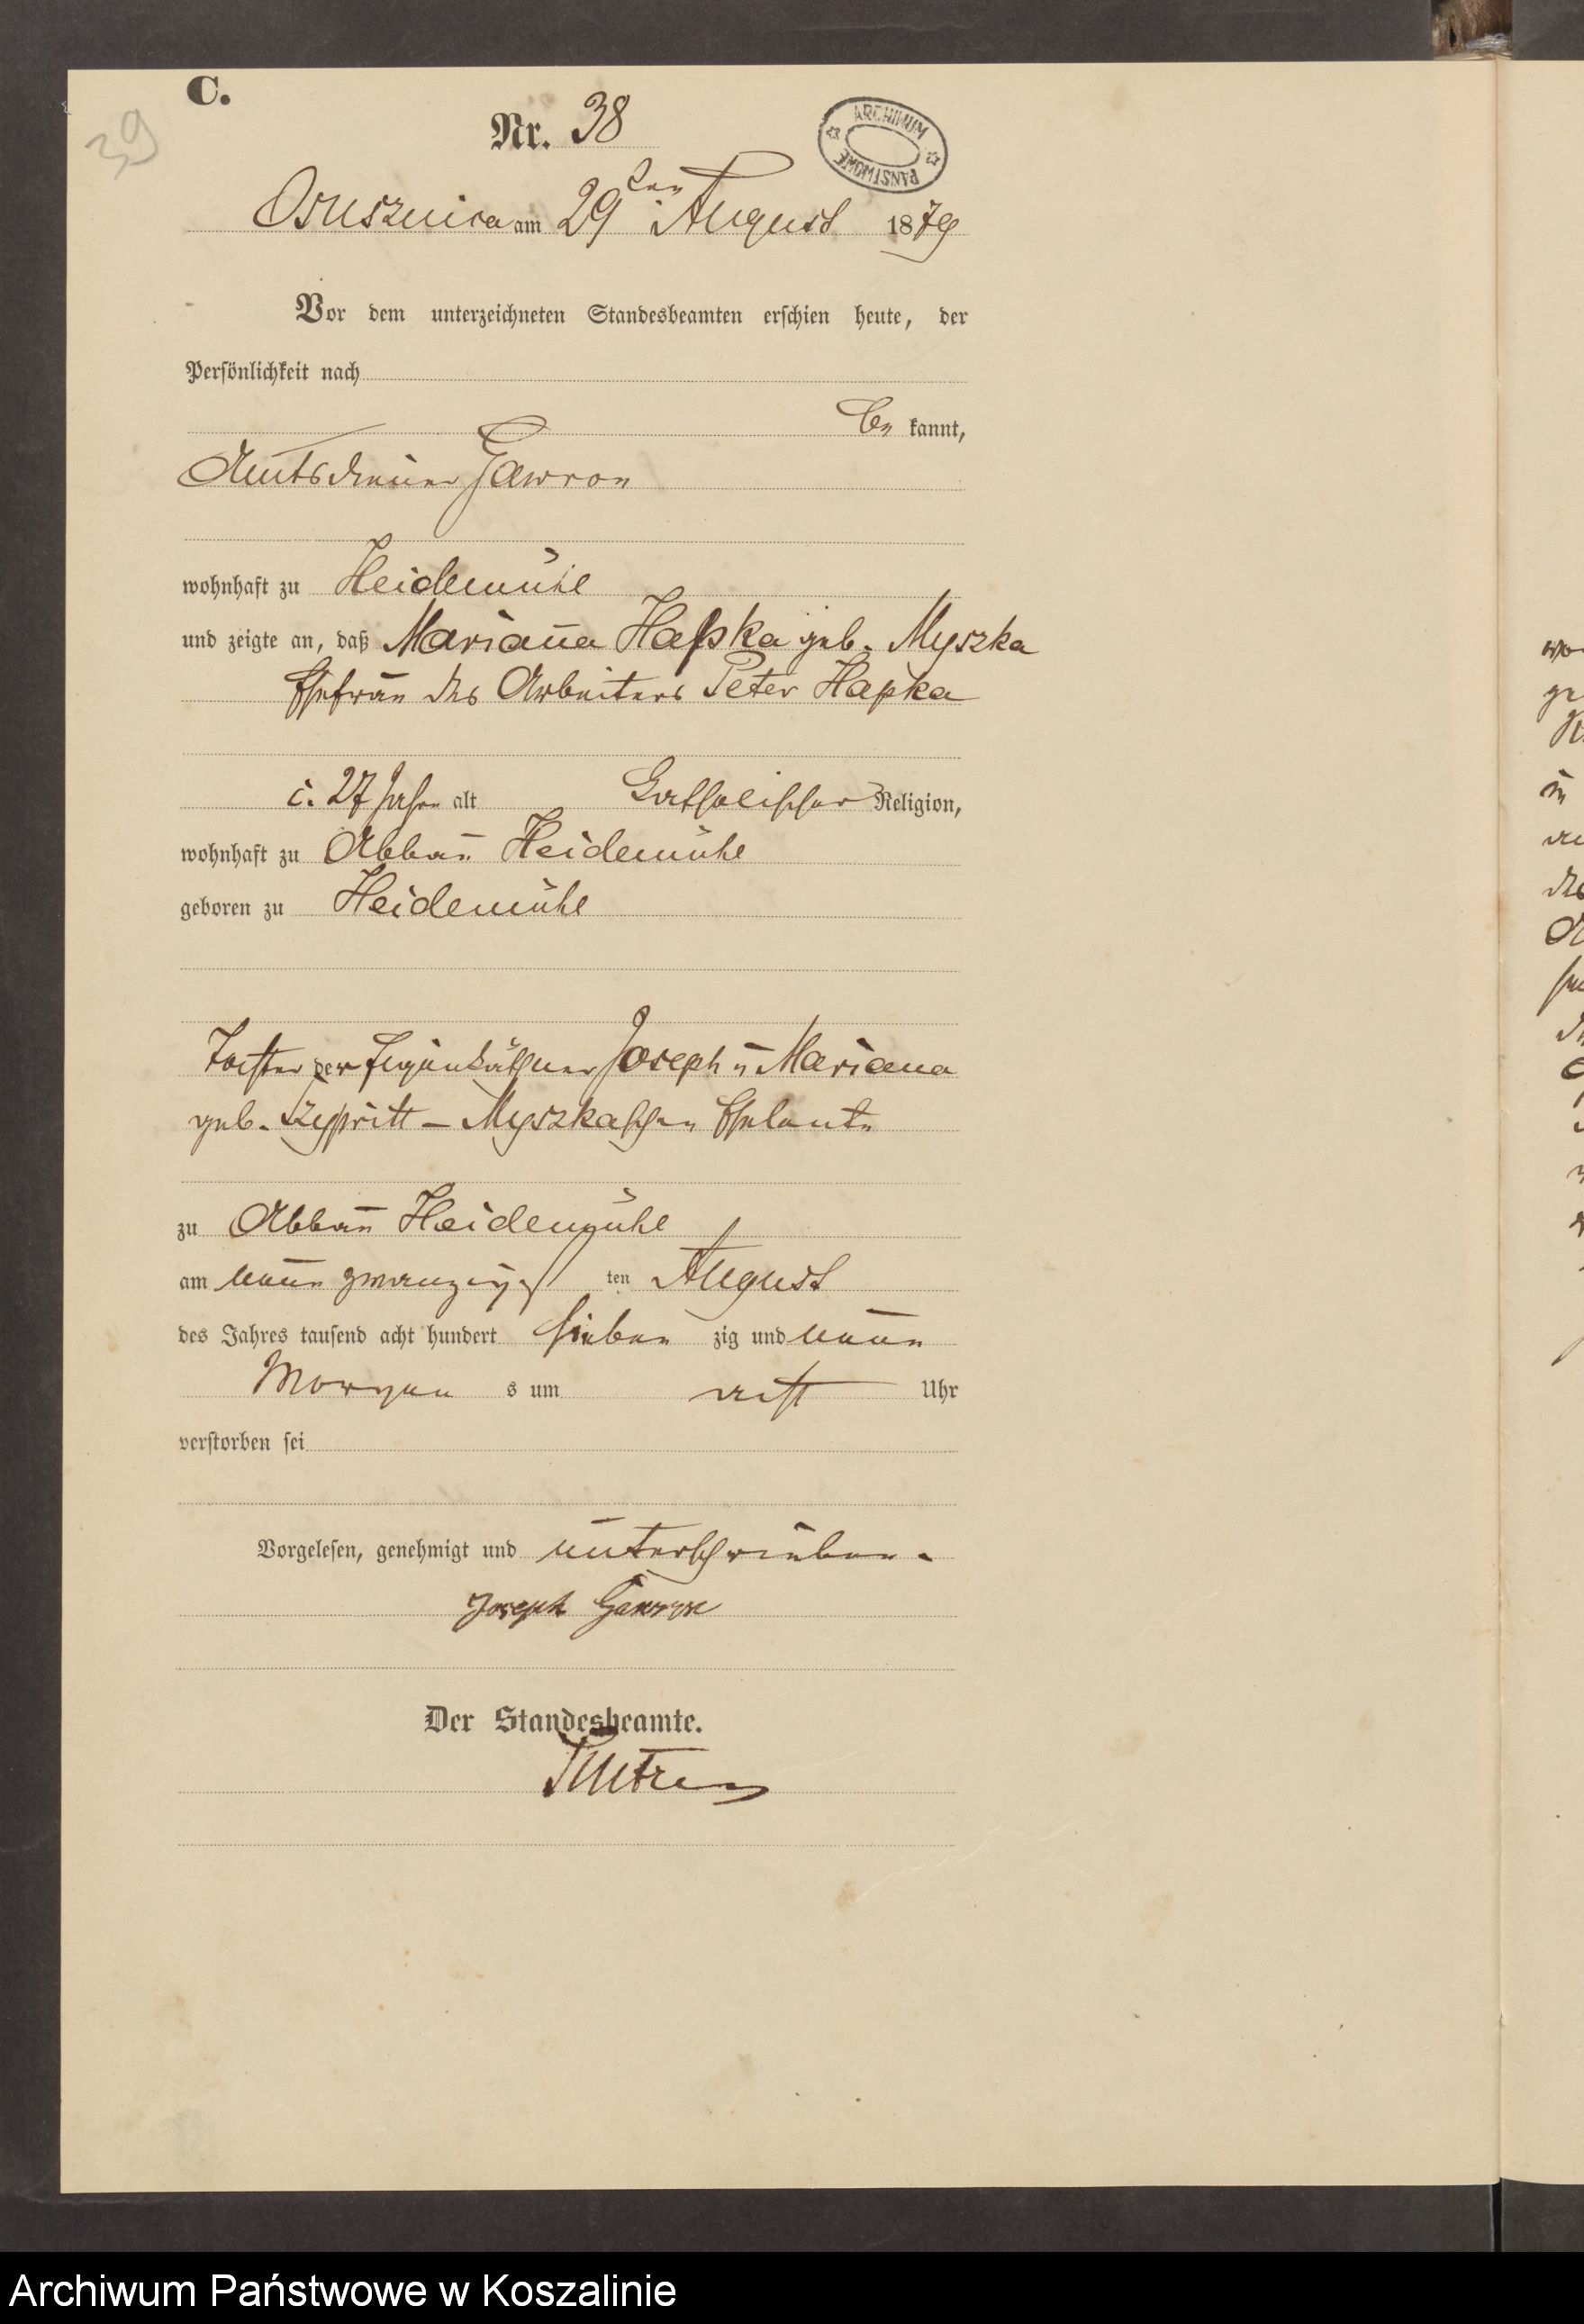 C.
39
Nr. 38
ARCHIWUM PAŃSTWOWE
Osusznica am 29ten August 1879
Vor dem unterzeichneten Standesbeamten erschien heute, der
Persönlichkeit nach
be kannt,
Amtsdiener Gawron
wohnhaft zu Heidemühl
und zeigte an, daß Marianna Hapka geb. Myszka
Ehefrau des Arbeiters Peter Hapka
c. 27 Jahre alt katholischer Religion,
wohnhaft zu Abbau Heidemühl
geboren zu Heidemühl
Tochter der Eigenkäthner Joseph u Mariana
geb. Myszkaschen Eheleute
zu Abbau Heidemühl
am neun zwanzigsten August
des Jahres tausend acht hundert sieben zig und neun
Morgen s um acht Uhr
verstorben sei
Vorgelesen, genehmigt und unterschrieben.
Joseph Gawron
Der Standesbeamte.
Archiwum Państwowe w Koszalinie